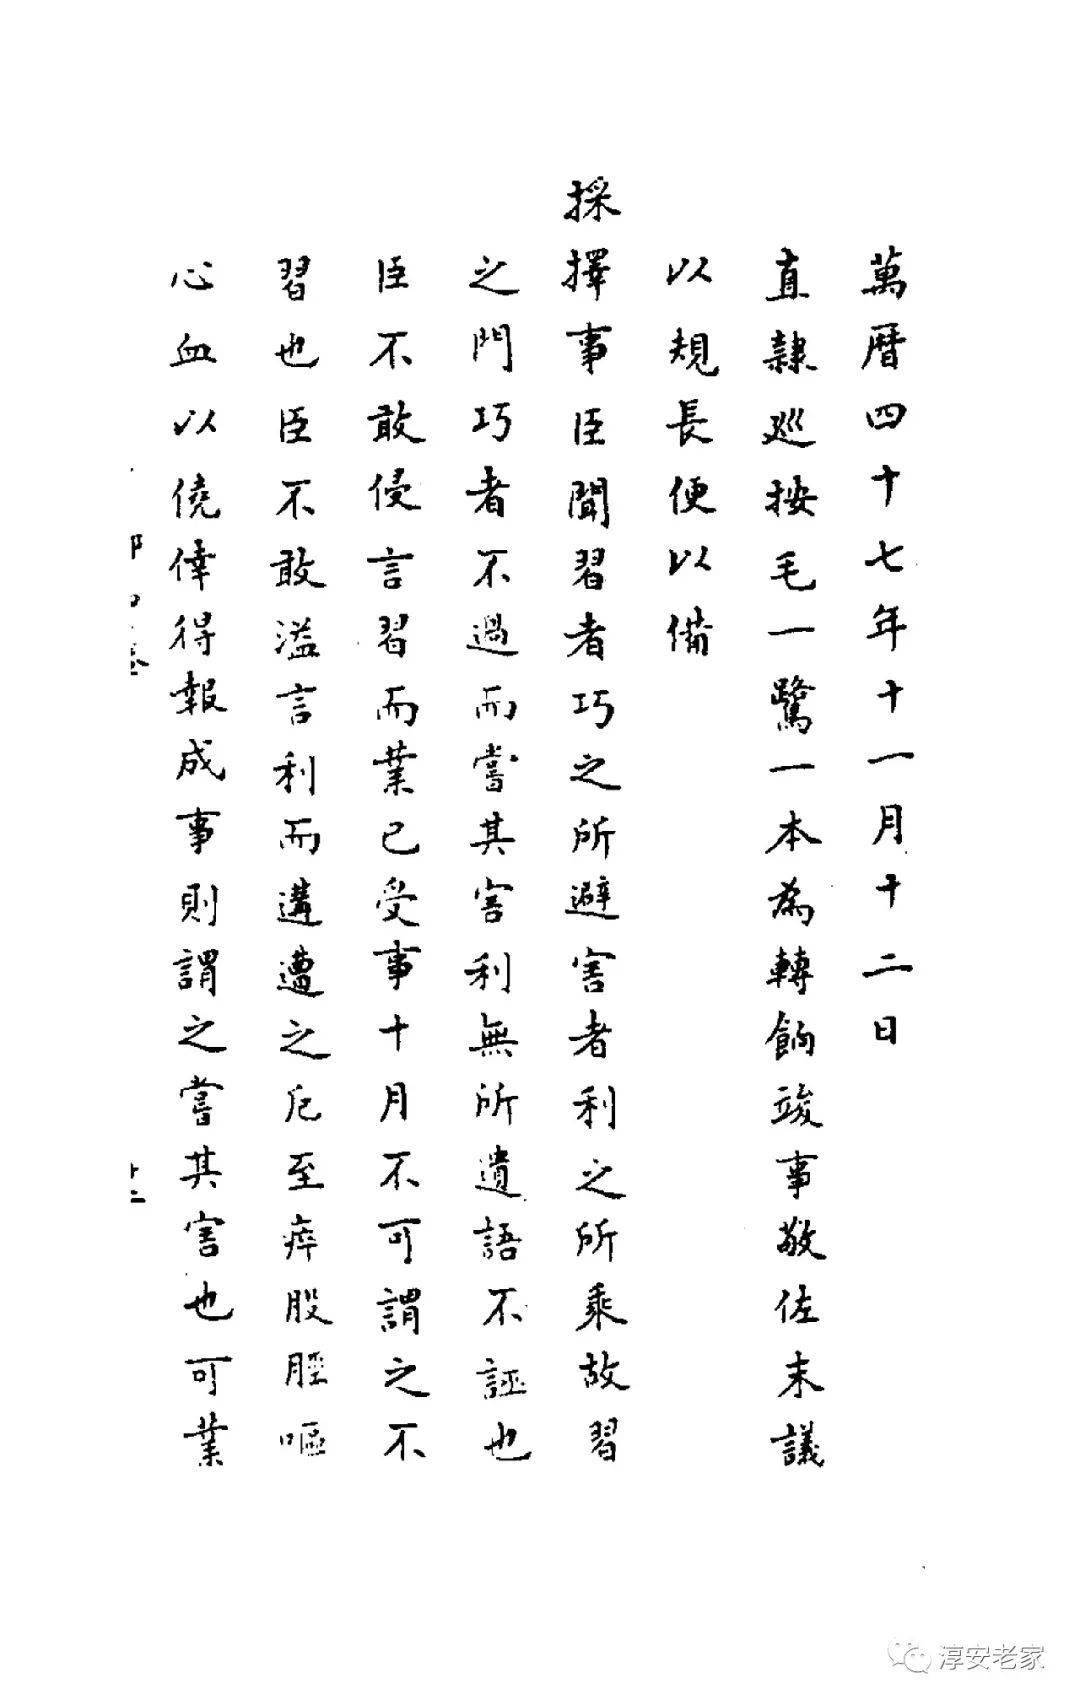 萬曆四十七年十一月十二日
直隸巡按毛一鷺一本為轉餉竣事敬佐末議
以規長便以備
採擇事臣聞習者巧之所避害者利之所乘故習
之門巧者不過而嘗其害利無所遺語不誣也
臣不敢侵言習而業已受事十月不可謂之不
習也臣不敢溢言利而遘遭之卮至瘁股脛嘔
心血以僥倖得報成事則謂之嘗其害也可業
淳安老家